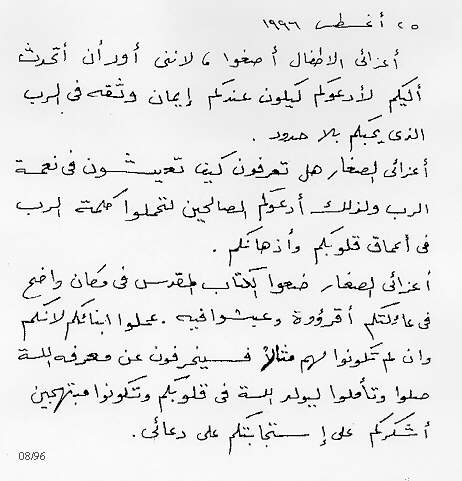 ٢٥ أغسطس ١٩٩٦
أعزائى الاطفال أصغوا، لاننى أود أن أتحدث
أليكم لأدعوكم كيلون عندكم إيمان وثقه فى الرب
الذى يحبكم بلا حدود.
أعزائى الصغار هل تعرفون كيف تعيشون فى نعمة
الرب ولذلك أدعوكم الصالحين لتحملوا كلمته الرب
فى أعماق قلوبكم وأذهانكم.
أعزائى الصغار ضعوا الكتاب المقدس فى مكان واضح
فى عائلتكم أقرؤوة وعيشوا فيه. عملوا ابنائكم لانكم
وان لم تكونوا لهم مثالاً فسينحرفون عن معرفه الله
صلوا وتأملوا ليولد الله فى قلوبكم وتكونوا مبتهجين
أشكركم على إستجابتكم على دعائى.
08/96